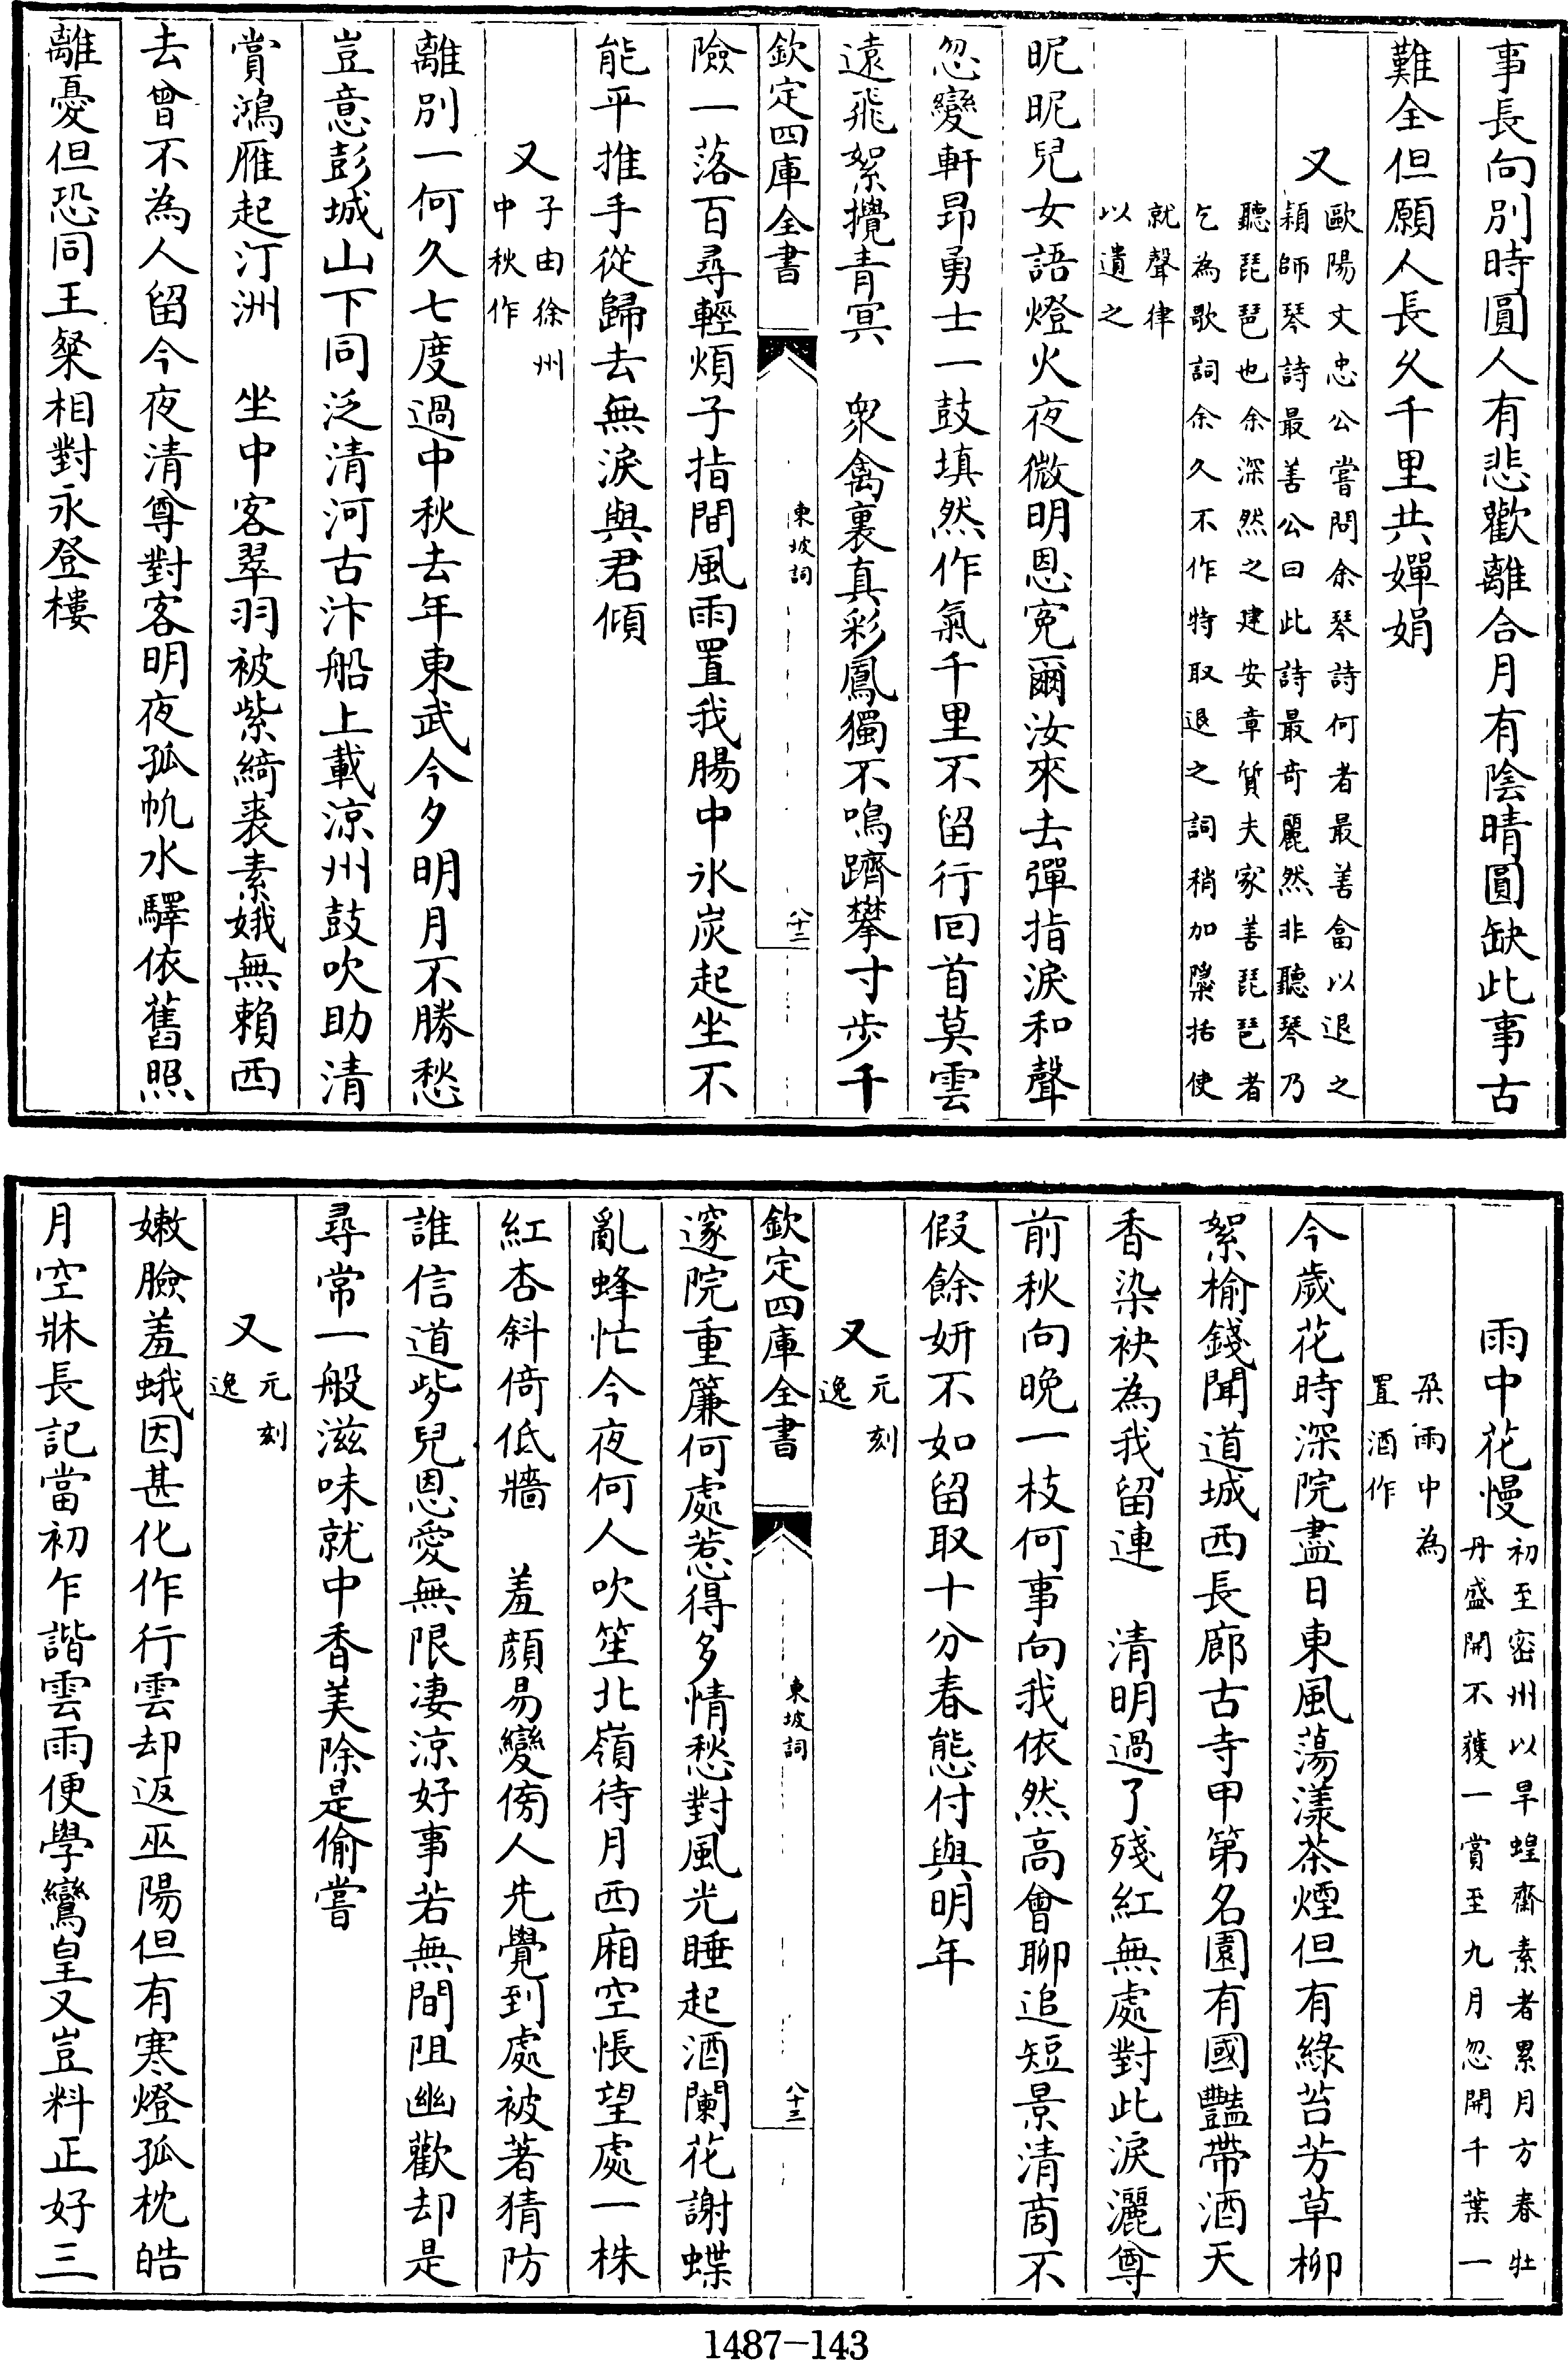 事長向別時圓人有悲歡離合月有陰晴圓缺此事古
難全但願人長久千里共嬋娟
又
歐陽文忠公嘗問余琴詩何者最善畣以退之
穎師琴詩最善公曰此詩最奇麗然非聽琴乃
聽琵琶也余深然之建安章質夫家善琵琶者
乞為歌詞余久不作特取退之詞稍加檃括使
就聲律
以遺之
昵昵兒女語燈火夜微明恩寃爾汝來去彈指淚和聲
忽變軒昂勇士一鼓填然作氣千里不留行回首莫雲
遠飛絮攪青冥　衆禽裏真彩鳳獨不鳴躋攀寸步千
欽定四庫全書
東坡詞
八十二
險一落百尋輕煩子指間風雨置我腸中氷炭起坐不
能平推手從歸去無淚與君傾
又
子由徐州
中秋作
離別一何久七度過中秋去年東武今夕明月不勝愁
豈意彭城山下同泛清河古汴船上載涼州鼓吹助清
賞鴻雁起汀洲　坐中客翠羽被紫綺裘素娥無賴西
去曾不為人留今夜清尊對客明夜孤帆水驛依舊照
離憂但恐同王粲相對永登樓
雨中花慢
初至密州以旱蝗齋素者累月方春牡
丹盛開不獲一賞至九月忽開千葉一
朶雨中為
置酒作
今歲花時深院盡日東風蕩漾茶煙但有綠苔芳草柳
絮榆錢聞道城西長廊古寺甲第名園有國豔帶酒天
香染袂為我留連　清明過了殘紅無處對此淚灑尊
前秋向晚一枝何事向我依然高會聊追短景清商不
假餘妍不如留取十分春態付與明年
又
元刻
逸
欽定四庫全書
東坡詞
八十三
邃院重簾何處惹得多情愁對風光睡起酒闌花謝蝶
亂蜂忙今夜何人吹笙北嶺待月西廂空悵望處一株
紅杏斜倚低牆　羞顏易變傍人先覺到處被著猜防
誰信道㱔兒恩愛無限凄涼好事若無間阻幽歡却是
尋常一般滋味就中香美除是偷嘗
又
元刻
逸
嫩臉羞蛾因甚化作行雲却返巫陽但有寒燈孤枕皓
月空牀長記當初乍諧雲雨便學鸞皇又豈料正好三
1487-143